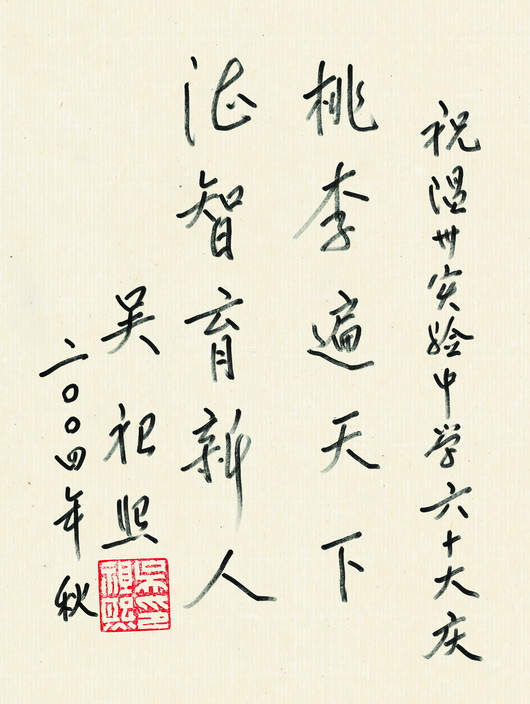 祝温州实验中学六十大庆
桃李遍天下
德智育新人
吴祖熙
二〇〇四年秋